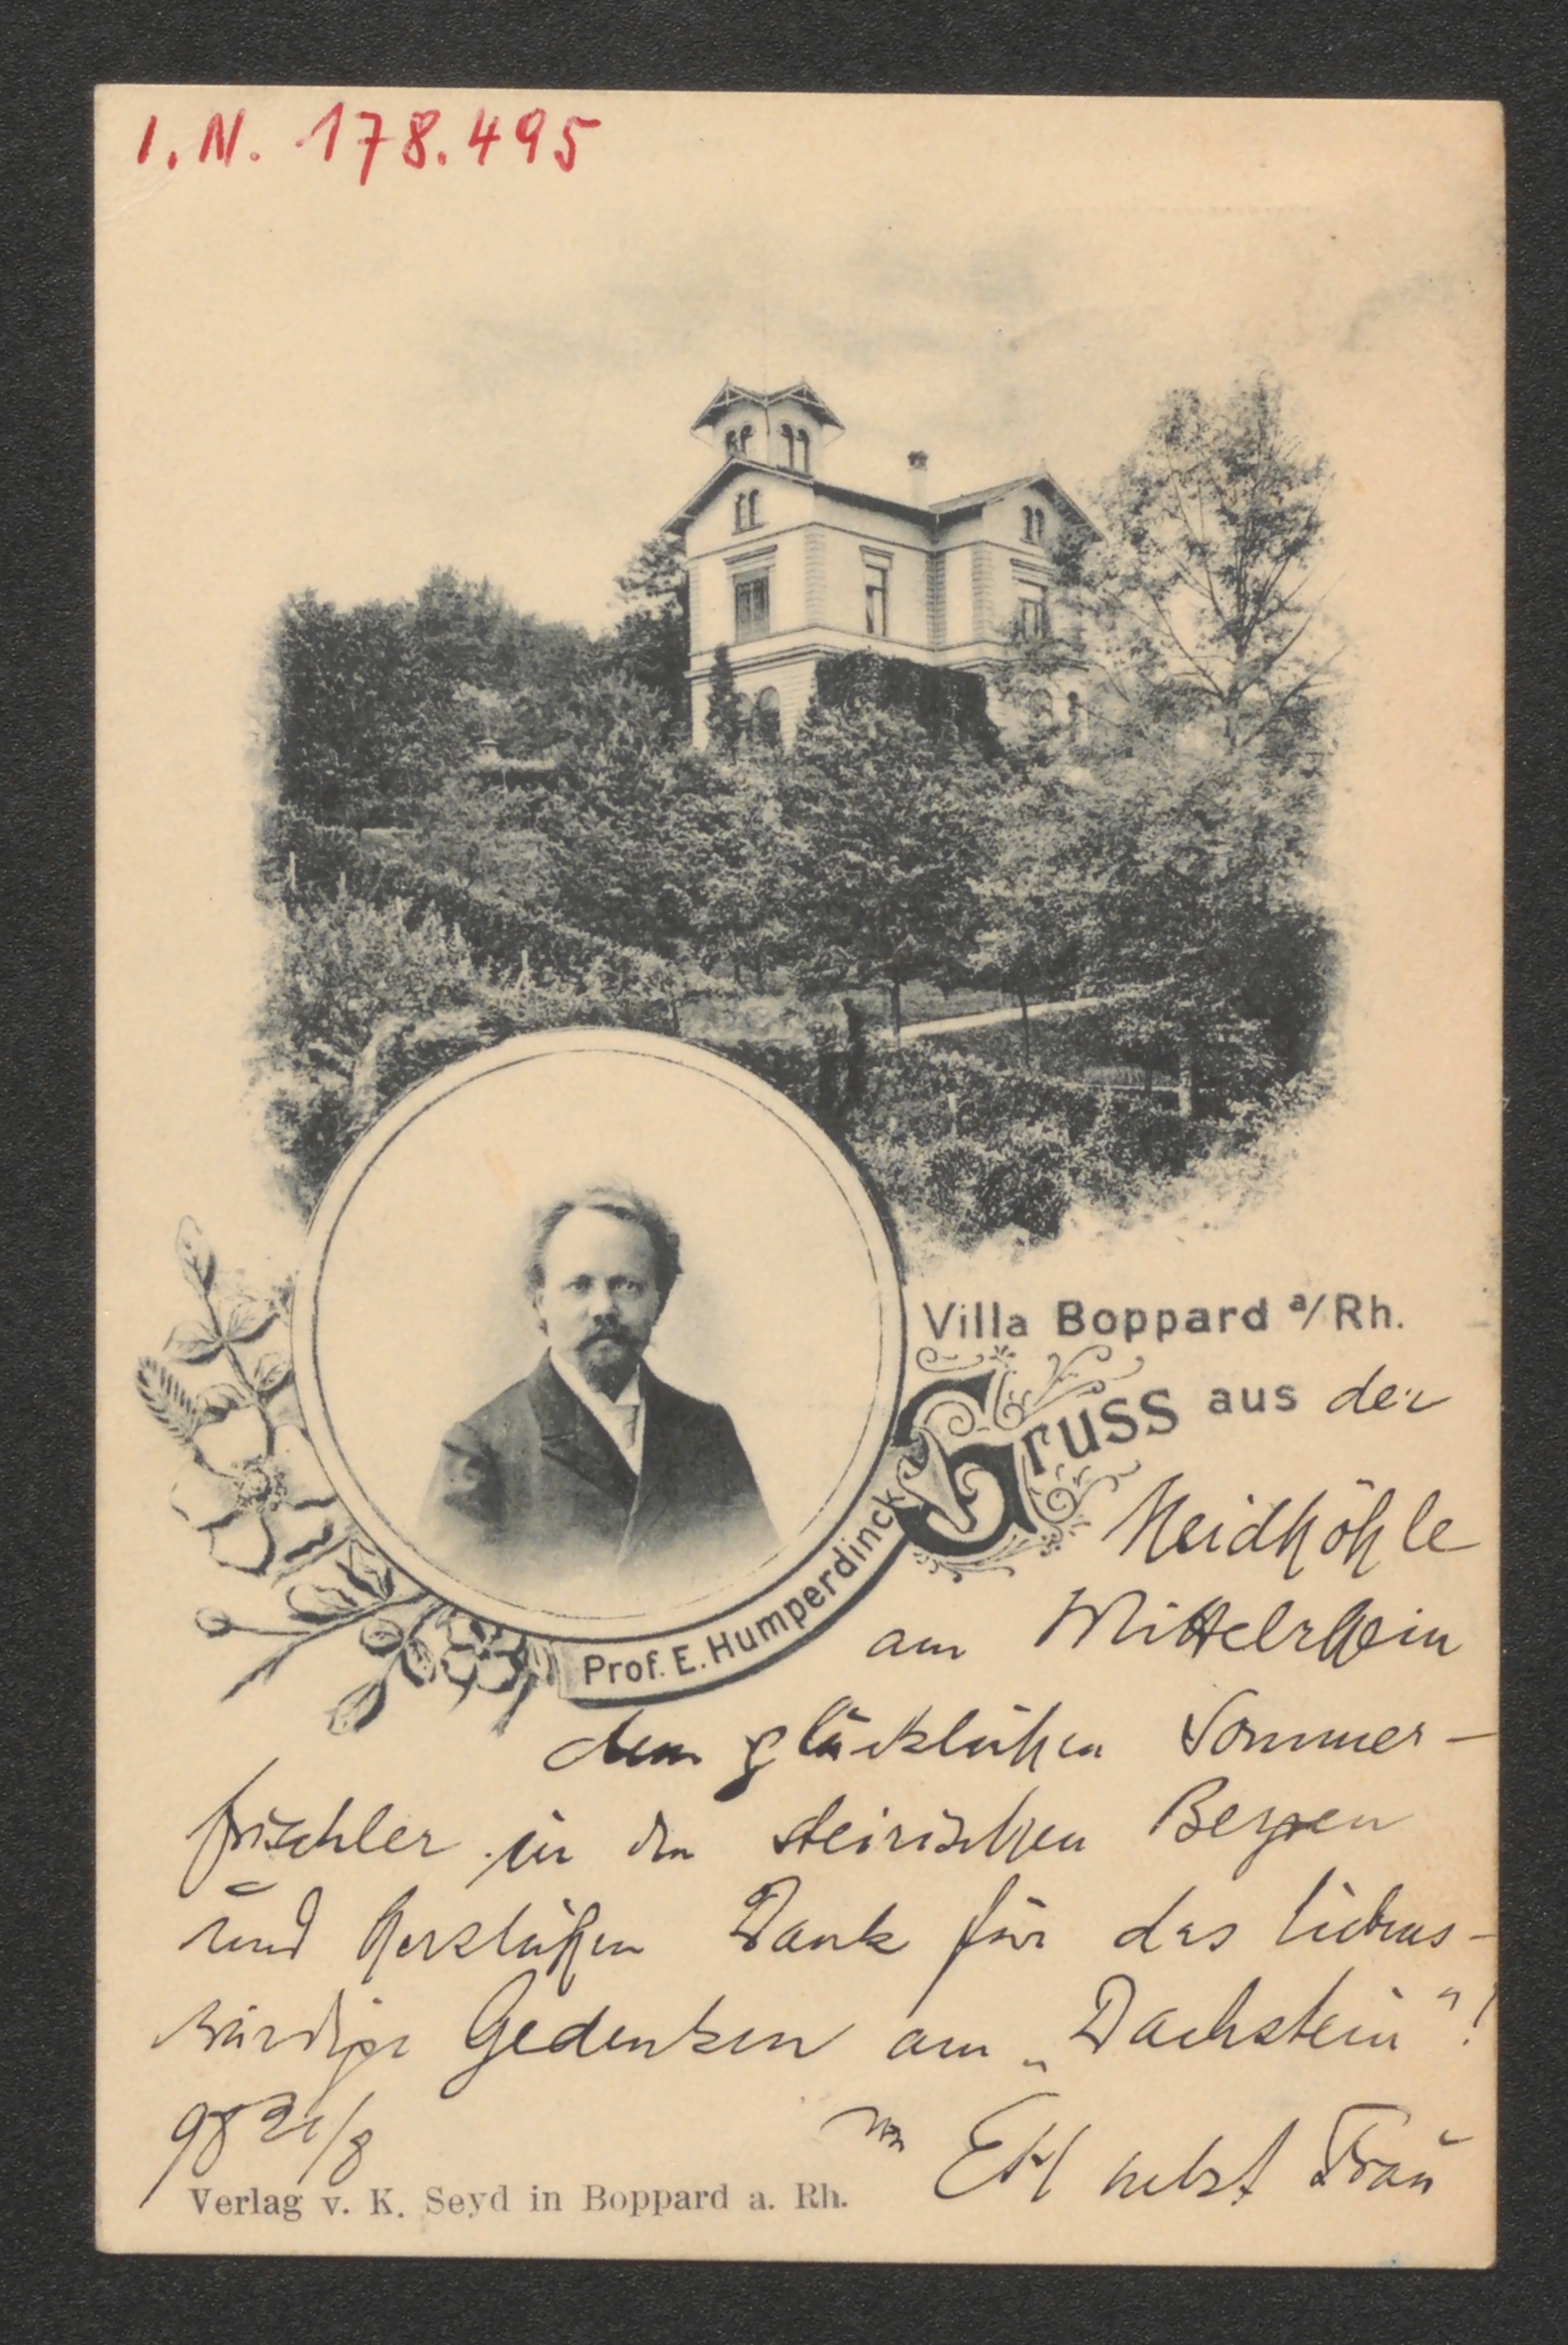 I.N. 178.495
Villa Boppard a/Rh.
Gruss aus der
Neidhöhle
am Mittelrhein
Prof. E. Humperdinck
dem glücklichen Sommer-
frischler in den steirischen Bergen
und herzlichen Dank für das liebens-
würdige Gedenken am „Dachstein"!
98 31/8
von EH nebst Frau
Verlag v. K. Seyd in Boppard a. Rh.